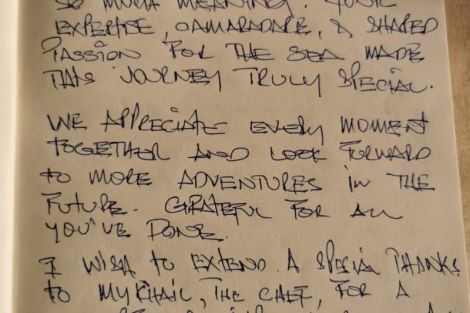 SO MUCH MEANING. YOUR
EXPERTISE, CAMARADARE, & SHARED
PASSION FOR THE SEA MADE
THIS JOURNEY TRULY SPECIAL.
WE APPRECIATE EVERY MOMENT
TOGETHER AND LOOK FORWARD
TO MORE ADVENTURES IN THE
FUTURE. GRATEFUL FOR ALL
YOU'VE DONE.
I WISH TO EXTEND A SPECIA THANKS
TO MYKHAIL, THE CHEF, FOR A